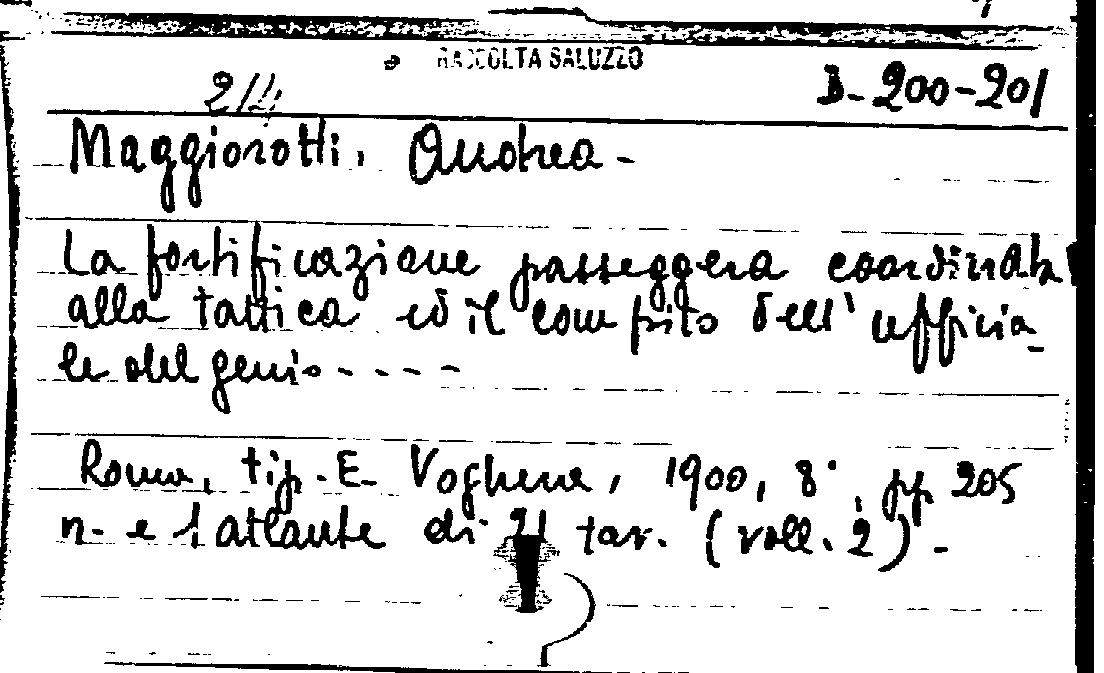 RACCOLTA SALUZZO
2/4 B-200-201
Maggiorotti, Andrea-
La fortificazione passeggera coordinata
alla tattica ed il compito dell'ufficia-
le del genio----
Roma, tip. E. Voghera, 1900, 8°, pp. 205
n. e 1 atlante di 21 tav. (voll. 2)-